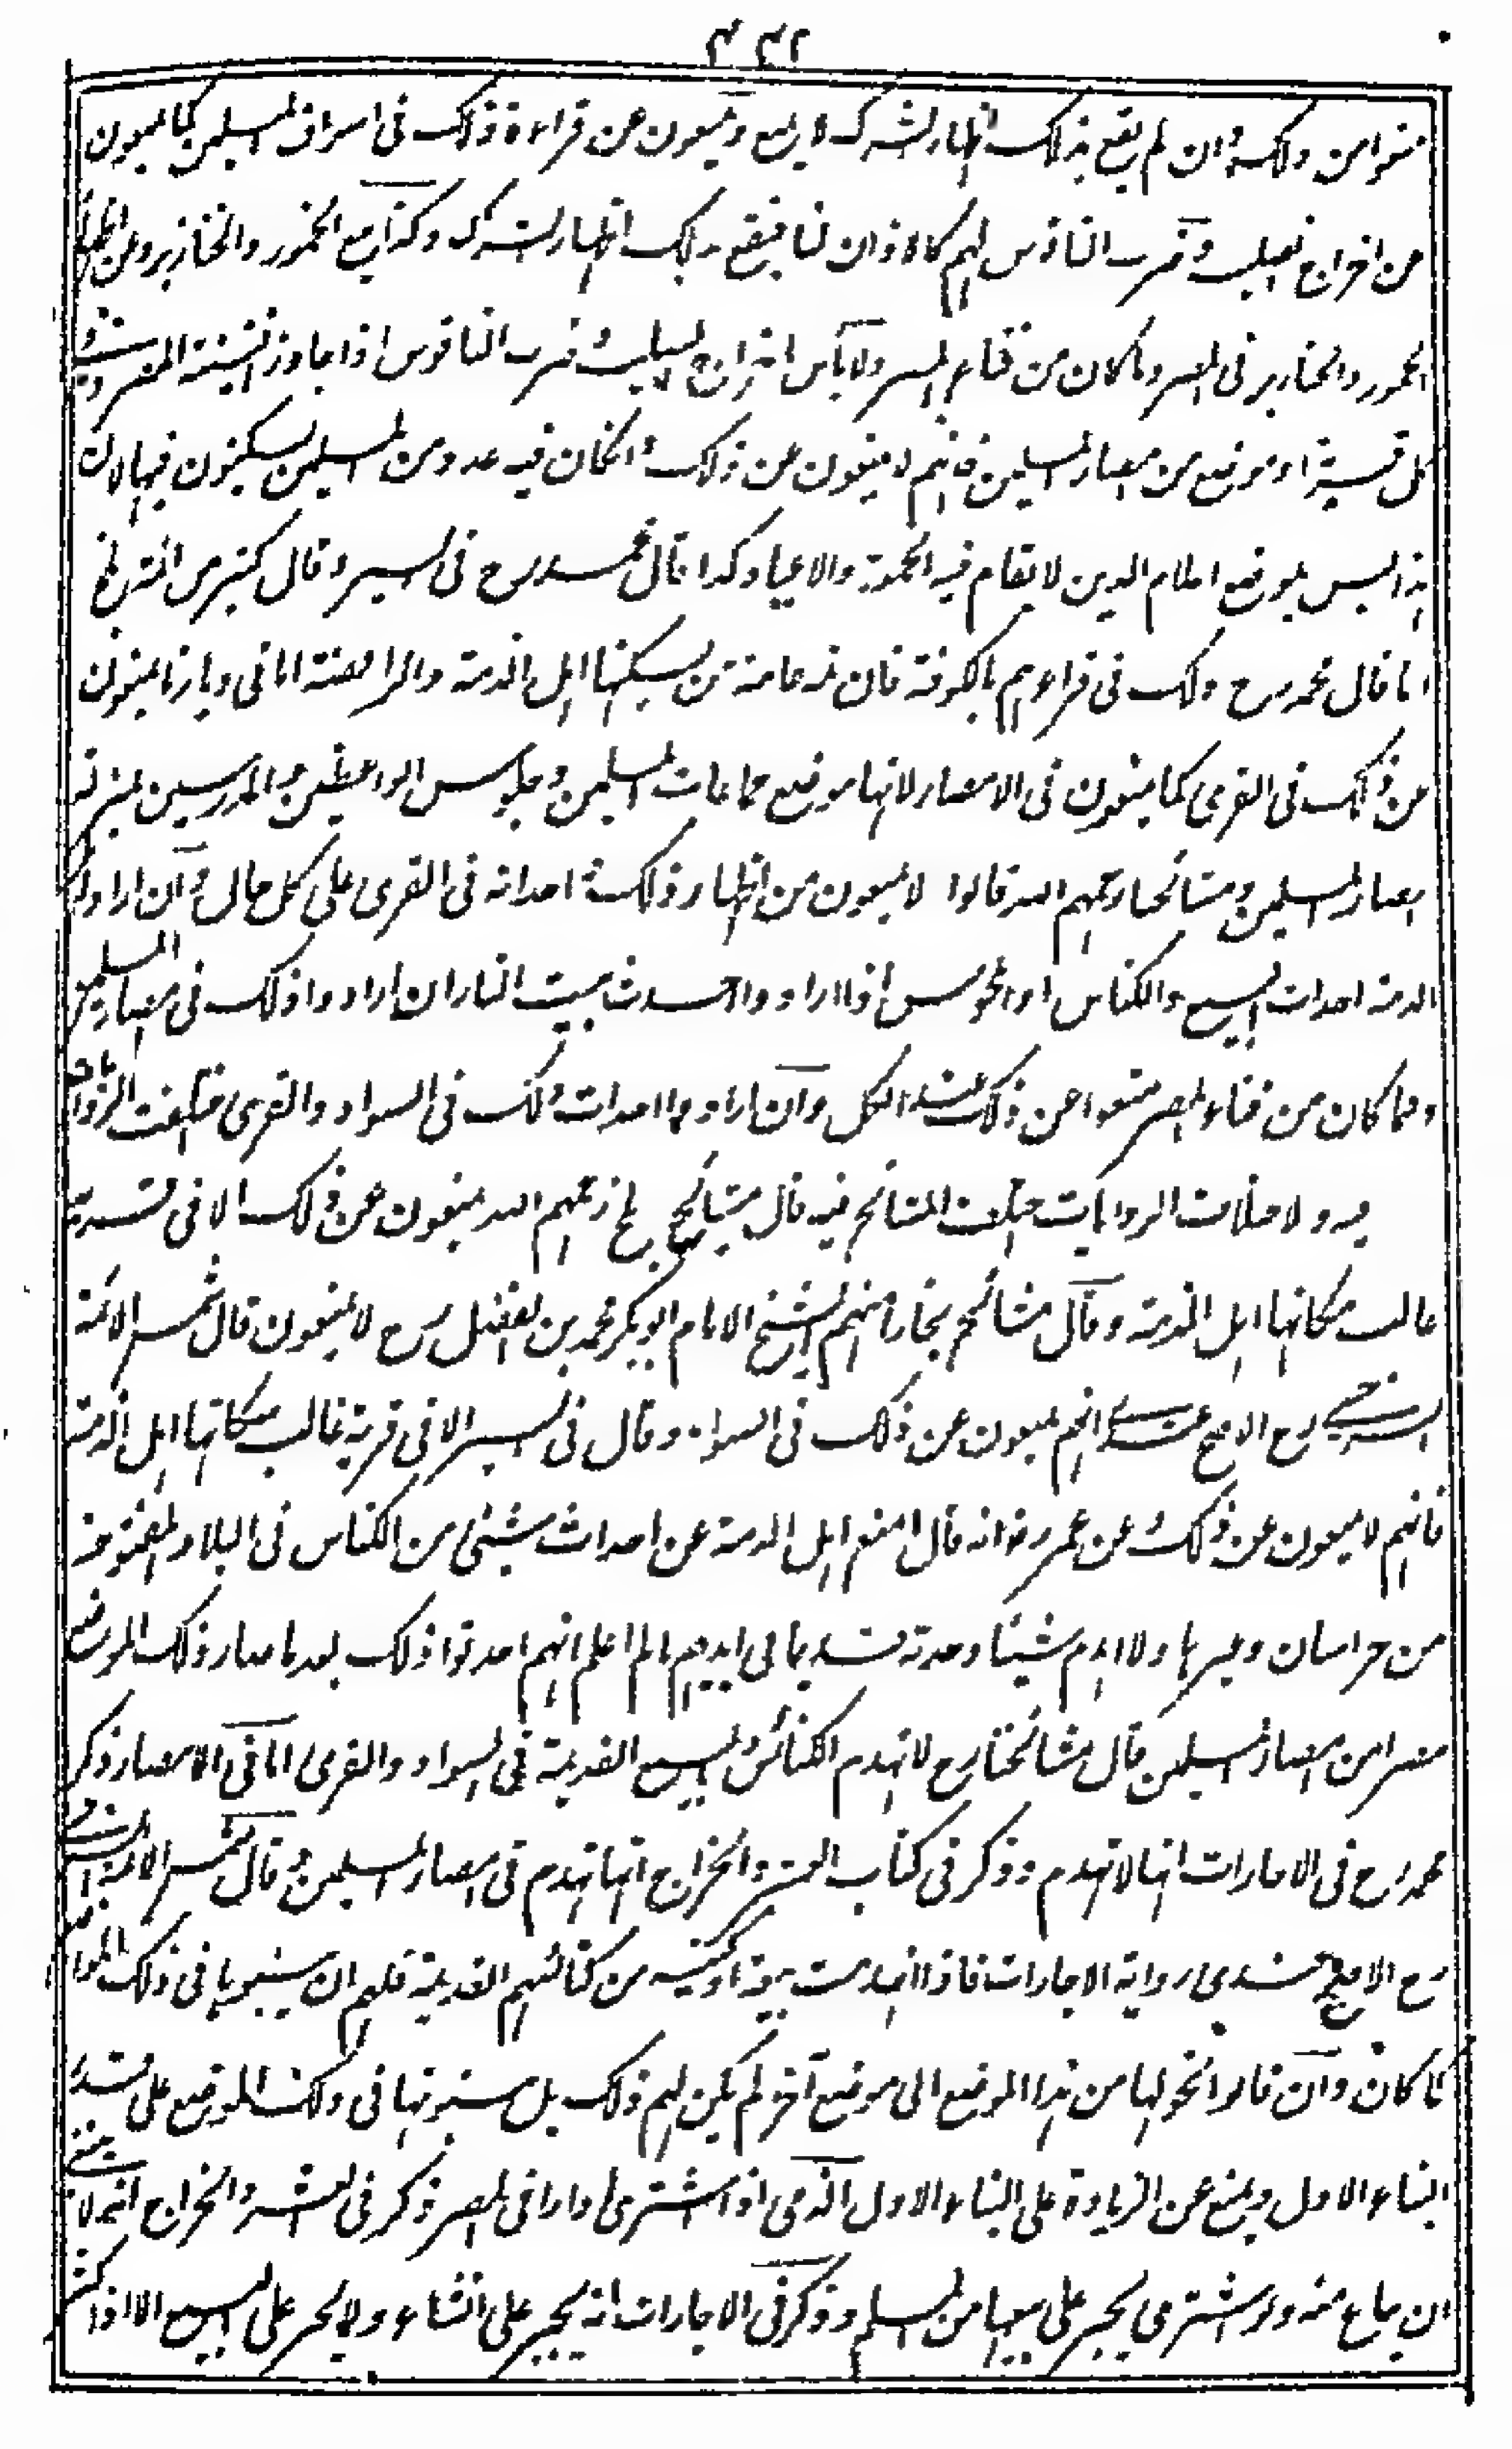 ٤٣٢
منعوا من ذلك وان لم يقع بذلك اظهار الشرك لا يمنع ويمنعون عن قراءة ذلك فى اسواق المسلمين كما يمنعون
عن اخراج الصليب وضرب الناقوس لهم كالاذان لنا فيقع بذلك اظهار الشرك وكذا بيع الخمور والخنازير وعن اظهار
الخمور والخنازير فى المصر وما كان من فناء المصر ولا بأس باخراج الصليب وضرب الناقوس اذا جاوز افنية المصر و
كل قرية او موضع من امصار المسلمين فانهم لا يمنعون عن ذلك وان كان فيه عدد من المسلمين يسكنون فيها لان
هذا ليس بموضع اعلام الدين لا يقام فيه الجمعة والاعياد كذا قال محمد رح فى السير وقال كثير من ائمة بلخ
انما قال محمد رح ذلك فى قراهم بالكوفة فان ثمه عامة من يسكنها اهل الذمة والرافضة اما فى ديارنا يمنعون
من ذلك فى القرى كما يمنعون فى الامصار لانها موضع جماعات المسلمين وجلوس الواعظين والمدرسين بمنزلة
امصار المسلمين ومشائخنا رحمهم الله قالوا لا يمنعون من اظهار ذلك احداثه فى القرى على كل حال وان اراد اهل
الذمة احداث البيع والكنائس او المجوس اذا ارادوا احداث بيت النار ان ارادوا ذلك فى امصار المسلمين
وفيما كان من فناء المصر منعوا عن ذلك عند الكل وان ارادوا احداث ذلك فى السواد والقرى اختلفت الروايات
فيه ولاختلاف الروايات اختلف المشائخ فيه قال مشائخ بلخ رحمهم الله يمنعون عن ذلك الا فى قرية
غالب سكانها اهل الذمة وقال مشائخ بخارا منهم الشيخ الامام ابو بكر محمد بن الفضل رح لا يمنعون قال شمس الائمة
السرخسى رح الاصح عندى انهم يمنعون عن ذلك فى السواد وقال فى السير الا فى قرية غالب سكانها اهل الذمة
فانهم لا يمنعون عن ذلك وعن عمر رض انه قال امنع اهل الذمة عن احداث شيئ من الكنائس فى البلاد المفتوحة
من خراسان وغيرها ولا اهدم شيئا وجدته قديما فى ايديهم ما لم اعلم انهم احدثوا ذلك بعد ما صار ذلك الموضع
مصرا من امصار المسلمين قال مشائخنا رح لا تهدم الكنائس والبيع القديمة فى السواد والقرى اما فى الامصار ذكر
محمد رح فى الاجارات انها لا تهدم وذكر فى كتاب العشر والخراج انها تهدم فى امصار المسلمين وقال شمس الائمة السرخسى
رح الاصح عندى رواية الاجارات فاذا انهدمت بيعة او كنيسة من كنائسهم القديمة فلهم ان يبنوها فى ذلك الموضع
كما كان وان قالوا نحولها من هذا الموضع الى موضع آخر لم يكن لهم ذلك بل يبنونها فى ذلك الموضع على قدر
البناء الاول ويمنع عن الزيادة على البناء الاول الذمى اذا اشترى دارا فى المصر ذكر فى العشر والخراج انه لا ينبغى
ان يباع منه ولو اشترى يجبر على بيعها من المسلم وذكر فى الاجارات انه يجبر على الشراء ولا يجبر على البيع الا اذا كثر